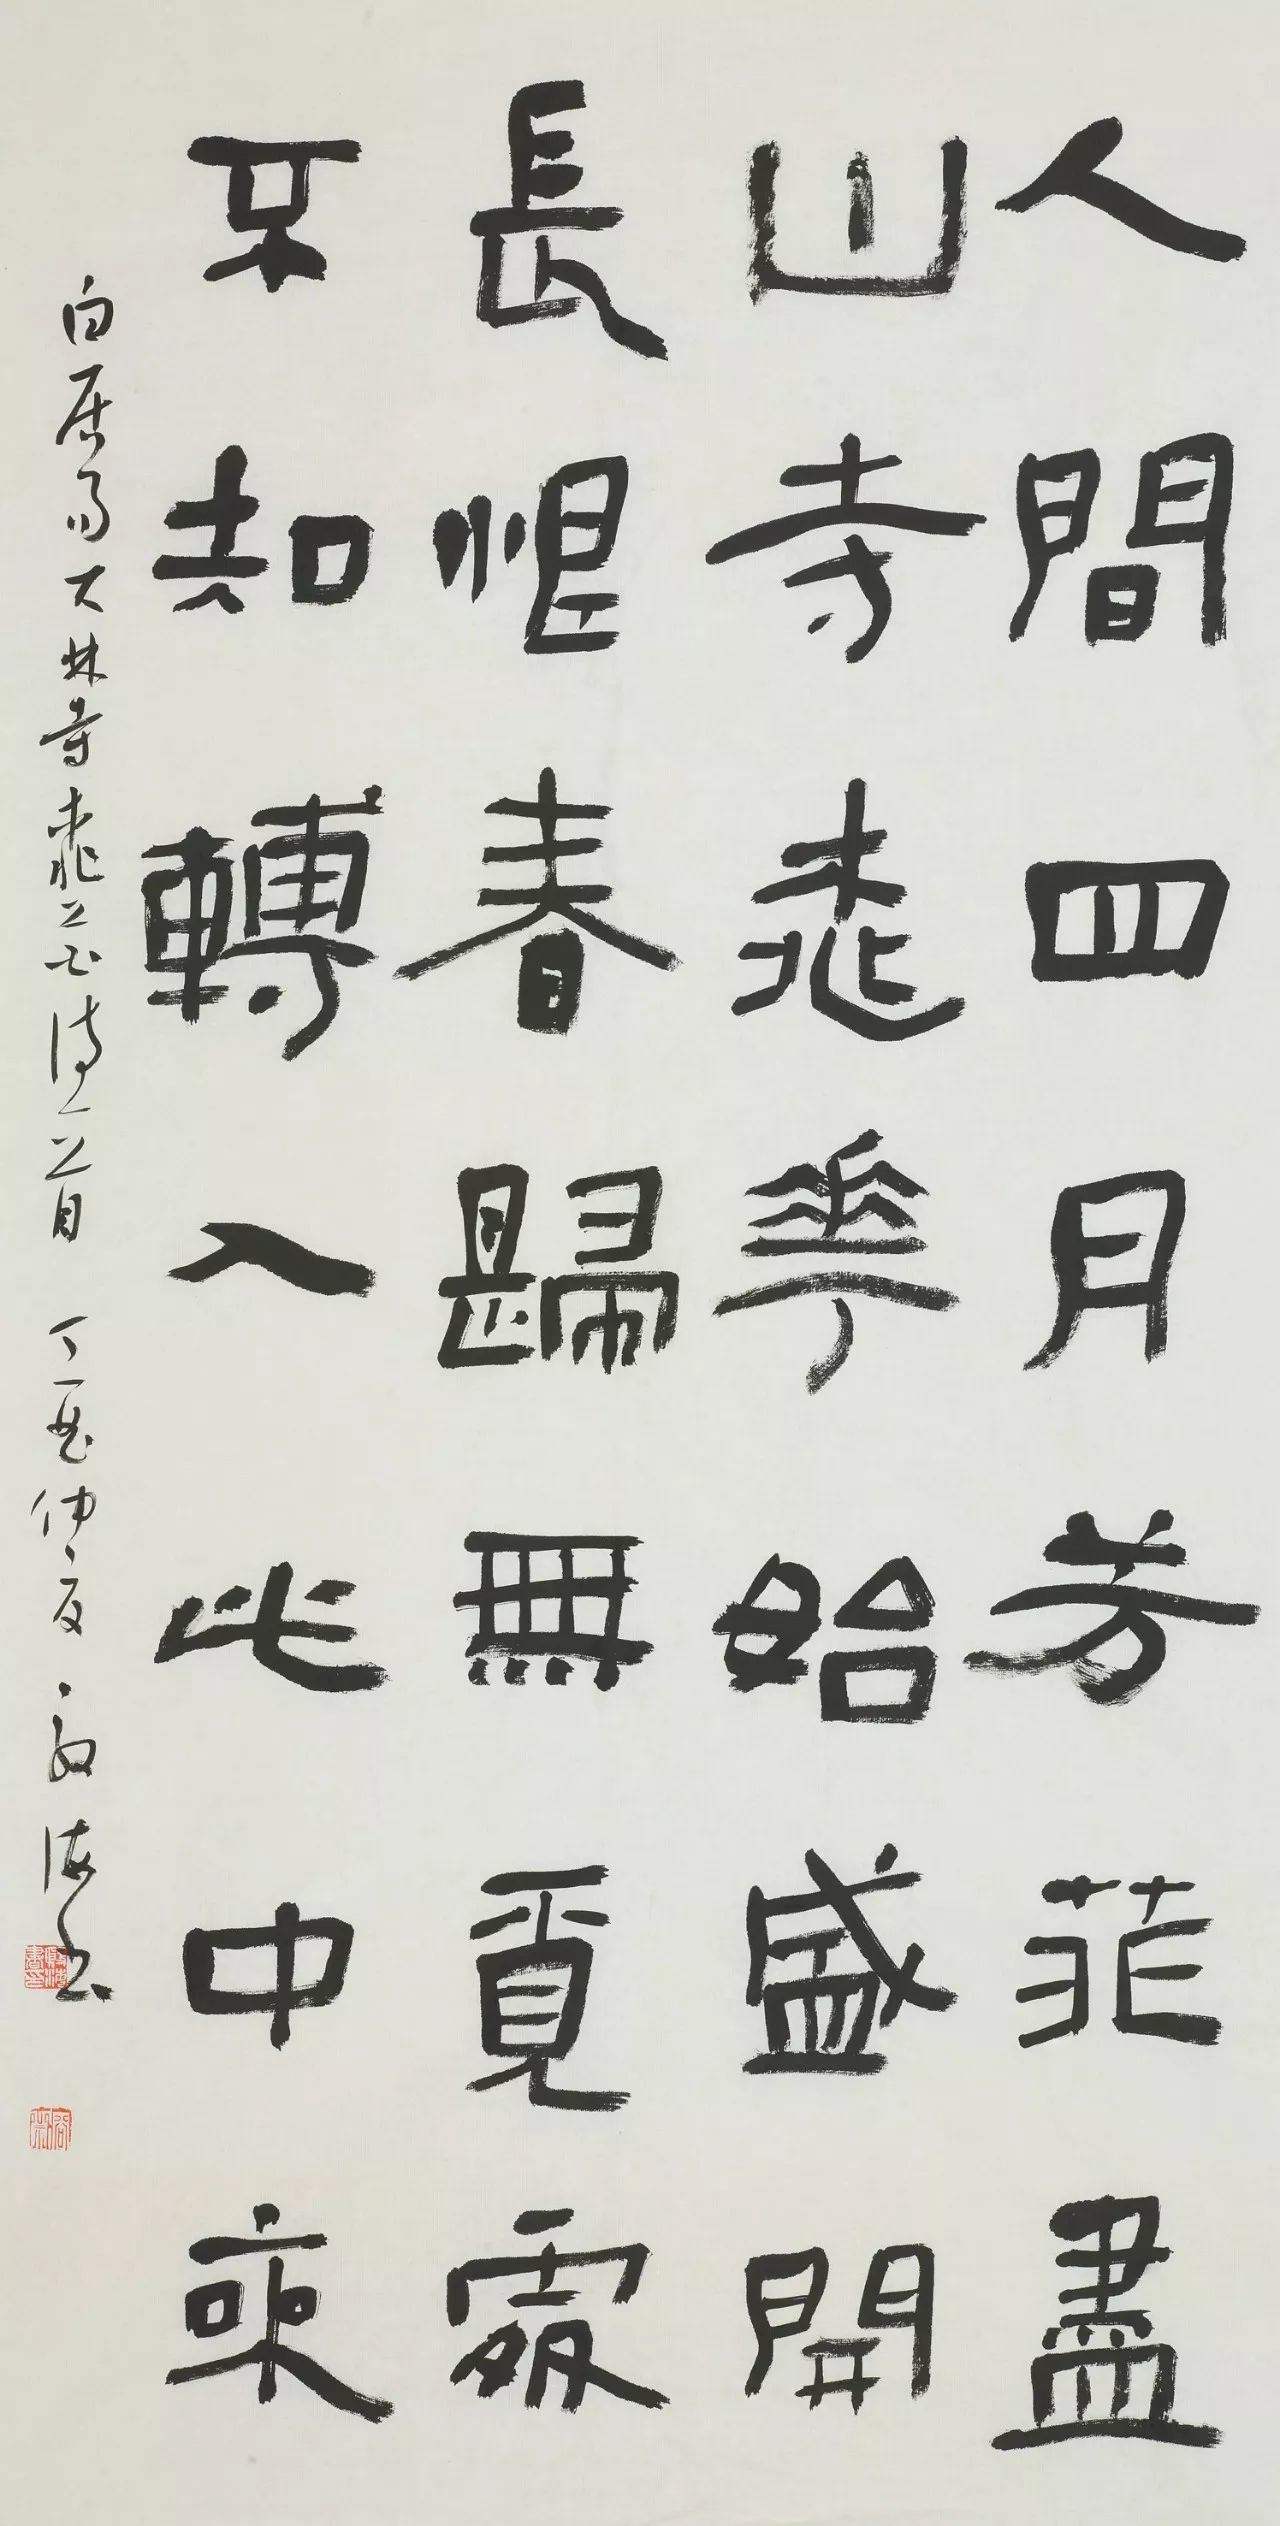 人間四月芳菲盡
山寺桃華始盛開
長恨春歸無覓處
不知轉入此中來
白居易大林寺桃花詩一首 丁酉仲夏 海書